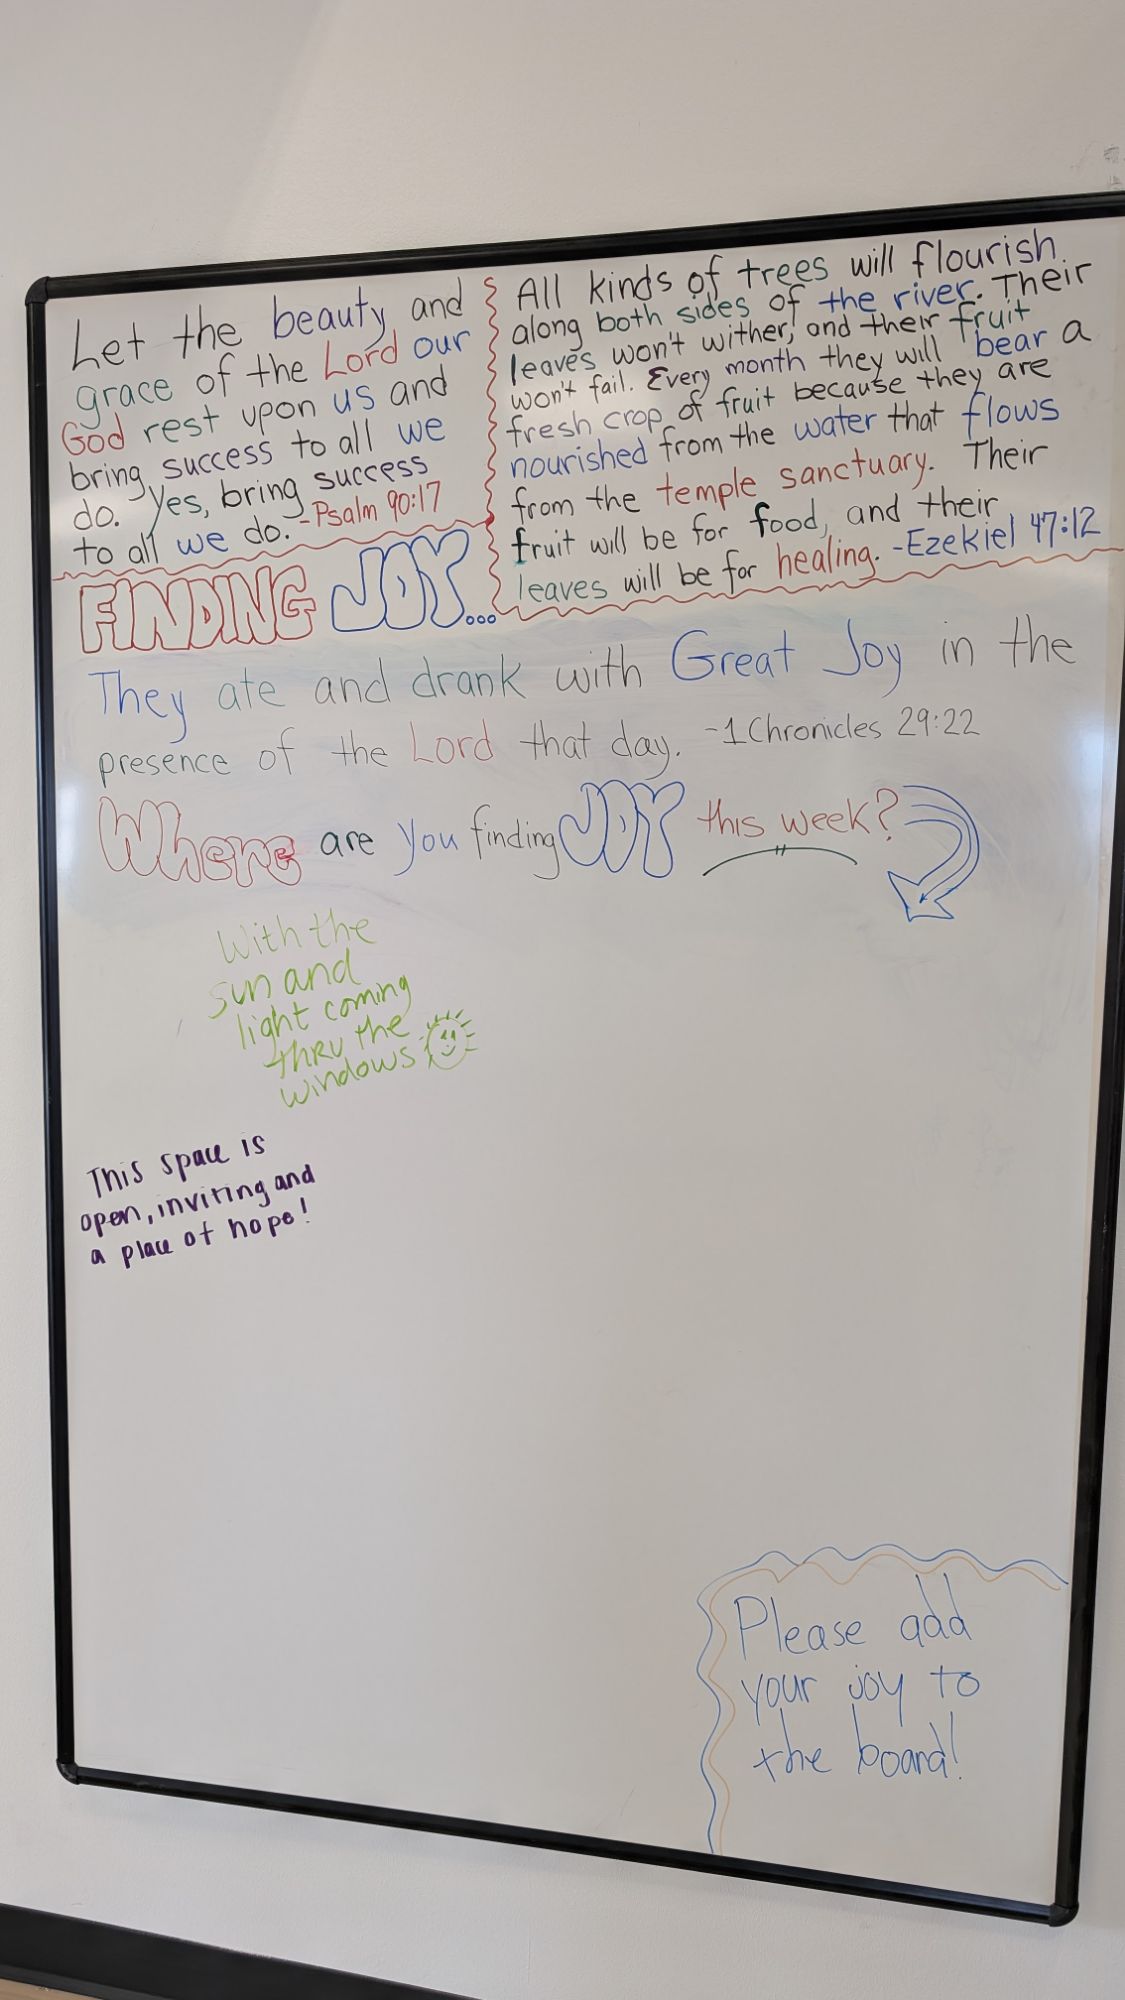 Let the beauty and
grace of the Lord our
God rest upon us and
bring success to all we
do. Yes, bring success
to all we do. -Psalm 90:17
All kinds of trees will flourish
along both sides of the river. Their
leaves won't wither, and their fruit
won't fail. Every month they will bear a
fresh crop of fruit because they are
nourished from the water that flows
from the temple sanctuary. Their
fruit will be for food, and their
leaves will be for healing. -Ezekiel 47:12
FINDING JOY...
They ate and drank with Great Joy in the
presence of the Lord that day. -1 Chronicles 29:22
Where are you finding JOY this week?
With the
sun and
light coming
thru the
windows
This space is
open, inviting and
a place of hope!
Please add
your joy to
the board!